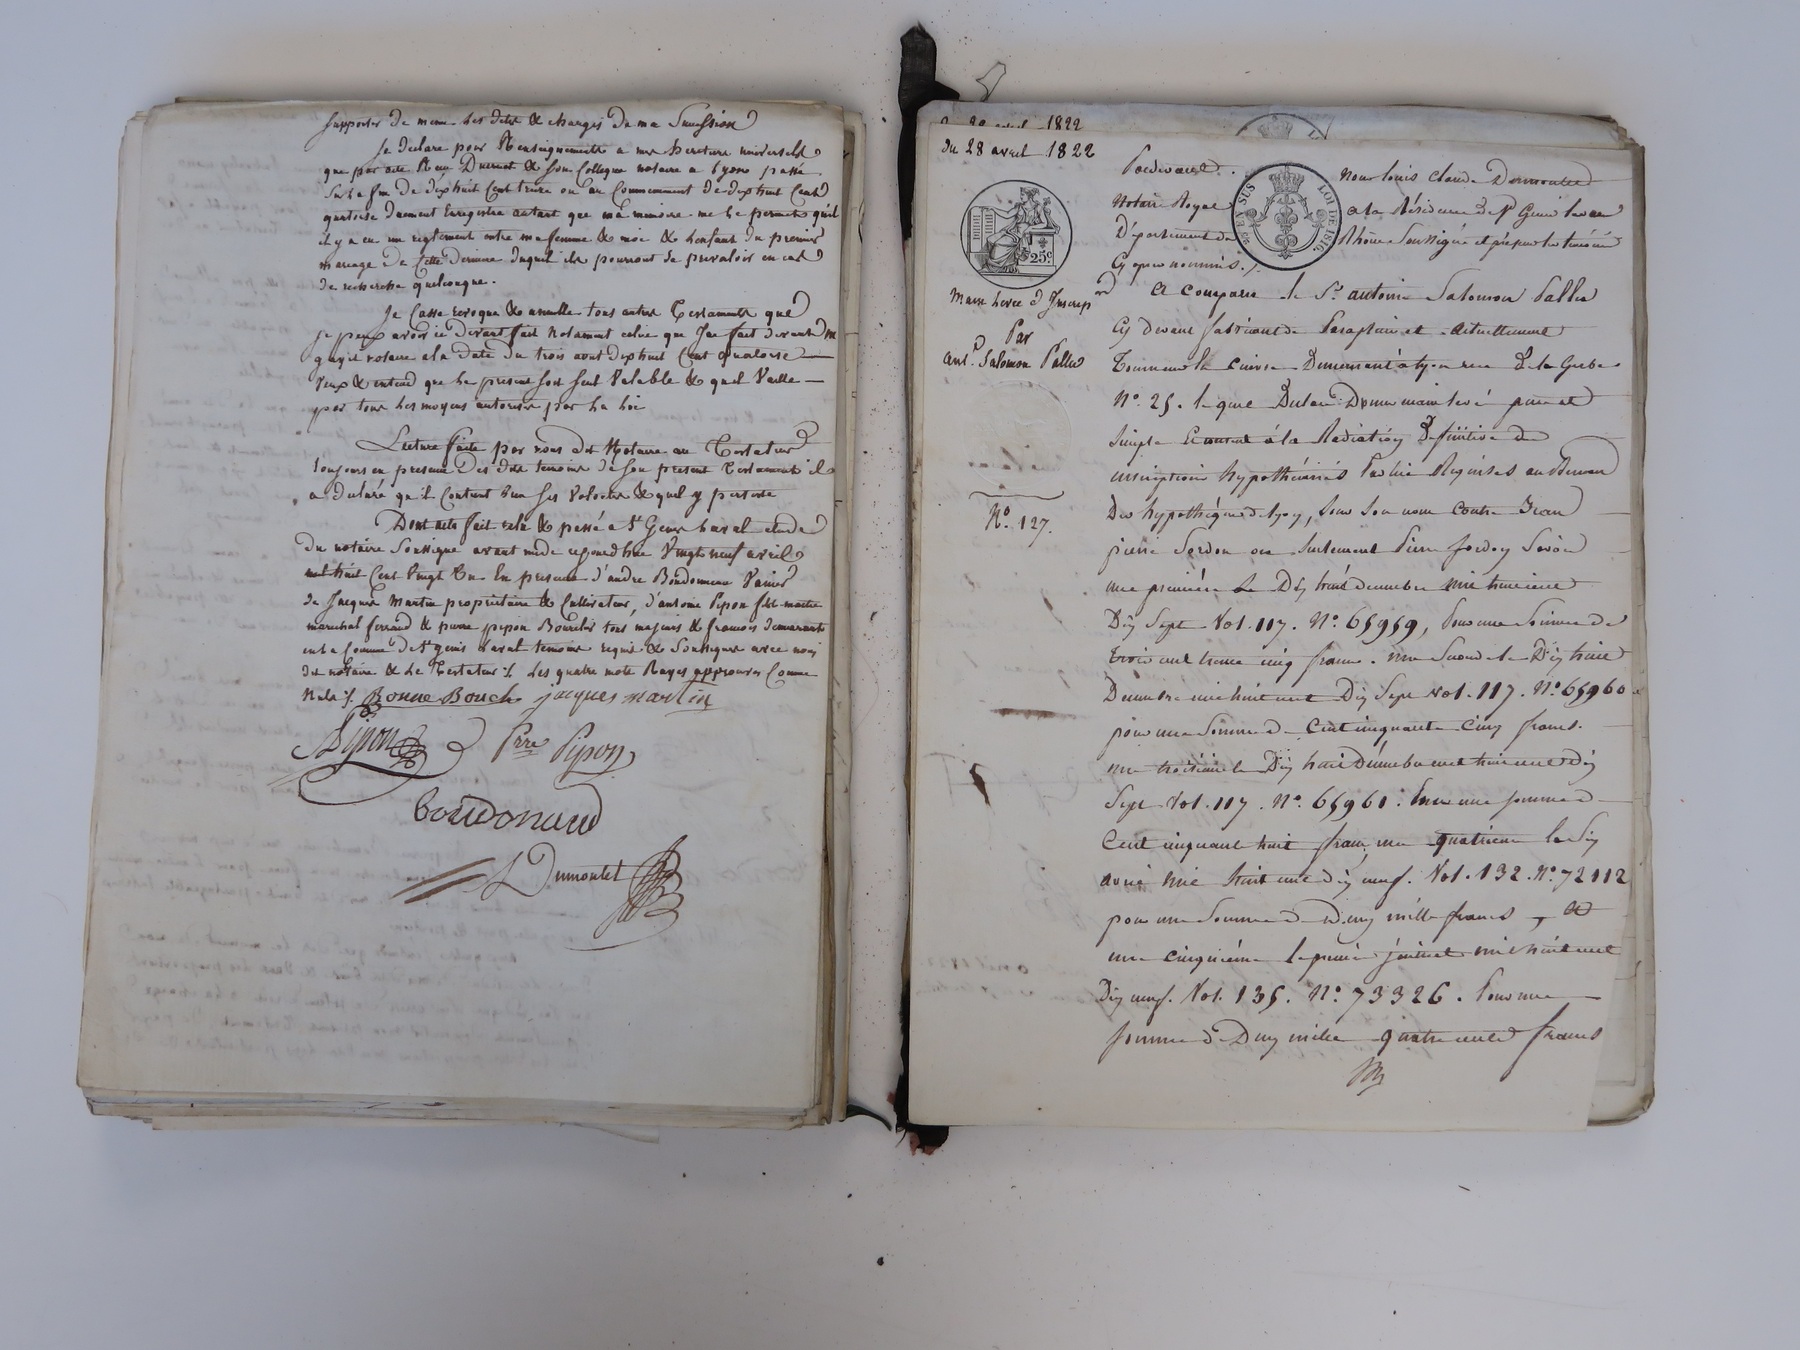 supporter de meme les dettes & charges de ma Succession
Je declare pour Renseignements a mes heritiers universels
que par acte Reçu Ducruet & son Collegue notaire a Lyon passé
Sur la fin de dixhuit Cent treize ou au Commencement de dixhuit Cent
quatorze duement Enregistré autant que ma memoire me le permet qu'il
il y a eu un reglement entre ma femme & moi & l'enfant du premier
mariage de Cette derniere duquel ils pourront se prevaloir en cas
de recherche quelconque.
Je Casse revoque & annulle tous autres Testaments que
je peux avoir ci devant fait notamment celui que J'ai fait devant Me
notaire a la date du trois aout dixhuit Cent quatorze
veux & entend que le present soit seul Valable & quel Vaille
par tous les moyens autorisés par la loi
Lecture faite par nous dit Notaire au Testateur
toujours en presence des dits temoins de son present Testament il
a declaré qu'il Contient bien ses Volontés & qu'il y persiste
Dont acte fait relu & passé a St Genis laval etude
du notaire Soussigné avant midi cejourd'hui Vingt neuf avril
mil huit Cent Vingt Un En presence d'andre Boudonneau
de Jacques Martin proprietaire & Cultivateur, d'antoine Pipon fils maitre
marechal ferrand & pierre pipon Bourelier tous majeurs & francois demeurants
en la Commune de St genis laval temoins requis & Soussignés avec nous
dit notaire & le Testateur ./. Les quatre mots Rayés approuvés Comme
Nuls ./. Bonne Bouche jacques martin
Pipon Pre Pipon
Boudonaud
Dumontet
avril 1822
du 28 avril 1822
25c
Main levée d'Inscripon
Par
Ant. Salomon Pallu
No. 127.
Pardevant
Notaire Royal
Département du
Cy après nommés ./.
EN SUS
LOI DE 1816
Nous louis claude Dumontet
a la Résidence de St Genis laval
Rhône Soussigné et présens les témoins
A Comparu le Sr. antoine Salomon Pallu
Cy devant fabricant de Parapluie et actuellement
Tourneur le Cuivre Demeurant à Lyon rue de la Gerbe
No. 25. lequel Declare Donner main levée pure et
simple Consent à la Radiation Définitive de
inscriptions hypothécaires Par lui Requises au Bureau
Des hypothèques de Lyon, sous son nom Contre Jean
pierre ou Seulement Pierre Savoir
une première Le Dix huit decembre mil huit cent
Dix Sept Vol. 117. No. 65959, Pour une Somme de
trois cent trente cinq francs. une Seconde le Dix huit
Decembre mil huit cent Dix Sept Vol. 117. No. 65960
pour une Somme de Cent cinquante Cinq francs.
une troisième le Dix huit Décembre mil huit cent dix
Sept Vol. 117. No. 65961. Pour une somme de
Cent cinquante huit francs, une quatrieme le Six
avril mil huit cent dix neuf. Vol. 132. No. 72112
pour une Somme de Deux mille francs, &
une cinquième le premier juillet mil huit cent
Dix neuf. Vol. 135. No. 73326. Pour une
somme de Deux mille quatre cents francs